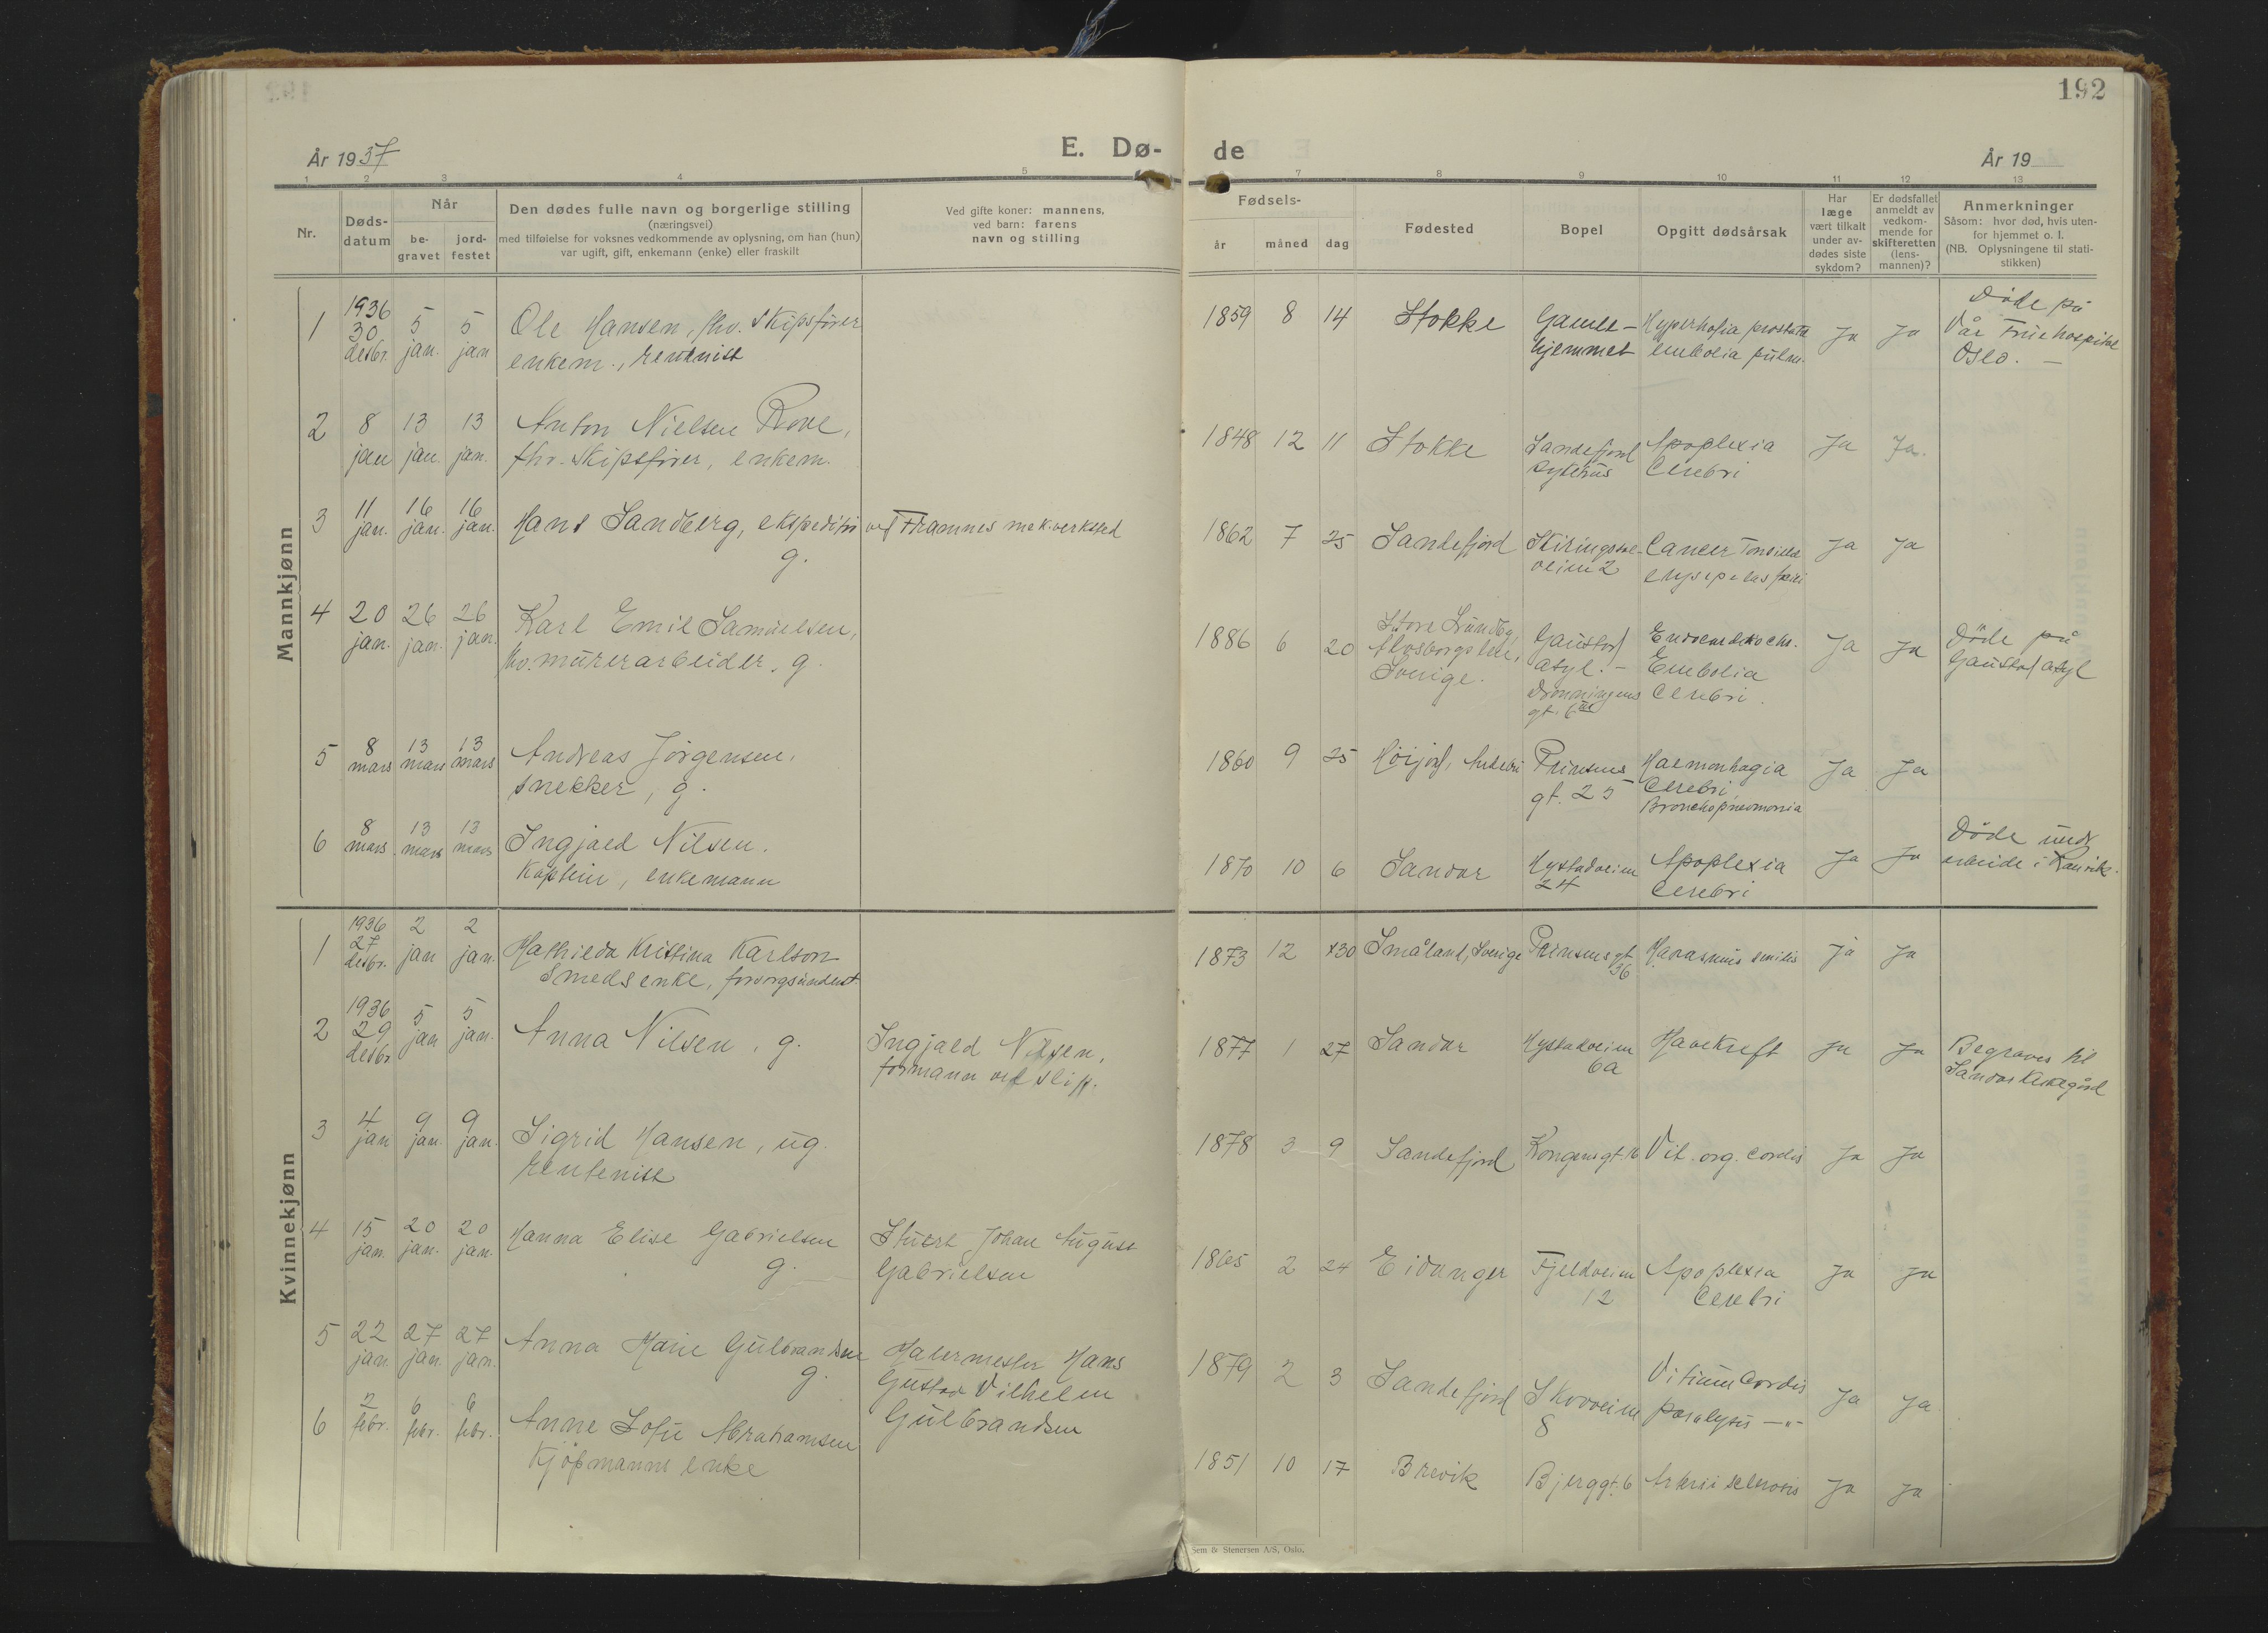 192
År 1937
E. Dø-
de
År 19
1 2 3 4 5
7 8 9 10 11 12 13
Nr.
Døds-
datum
Når
be-
gravet
jord-
festet
Den dødes fulle navn og borgerlige stilling
(næringsvei)
med tilføielse for voksnes vedkommende av oplysning, om han (hun)
var ugift, gift, enkemann (enke) eller fraskilt
Ved gifte koner: mannens,
ved barn: farens
navn og stilling
Fødsels-
år måned dag
Fødested
Bopel
Opgitt dødsårsak
Har
læge
vært tilkalt
under av-
dødes siste
sykdom?
Er dødsfallet
anmeldt av
vedkom-
mende for
skifteretten
(lens-
mannen)?
Anmerkninger
Såsom: hvor død, hvis uten-
for hjemmet o. l.
(NB. Oplysningene til stati-
stikken)
Mannkjønn
1 1936 30 desbr. 5 jan. 5 jan Ole Hansen, fhv. skipsfører
enkem., rentenist
1859 8 14 Stokke Gamle-
hjemmet
Hypertrofia prostata
embolia pulm.
Ja Ja
Døde på
Vår Frue hospital
Oslo. –
2 8 jan 13 jan. 13 jan. Anton Nielsen Rove,
fhv. skipsfører, enkem.
1848 12 11 Stokke Sandefjord
sykehus
Apoplexia
Cerebri
Ja Ja.
3 11 jan. 16 jan. 16 jan. Hans Sandberg, ekspeditør ved Framnes mek. verksted
g.
1862 7 25 Sandefjord Skiringssal-
veien 2
Cancer Tonsilla
erysipelas faciei
Ja Ja
4 20 jan. 26 jan. 26 jan. Karl Emil Samuelsen,
fhv. murerarbeider, g.
1886 6 20 Store Lundby,
Alvsborgs len,
Sverige.
Gaustad
asyl. –
Dronningens
gt. 6
Endocarditis chr.
Embolia
Cerebri.
Ja Ja
Døde på
Gaustad asyl
5 8 mars 13 mars 13 mars Andreas Jørgensen,
snekker, g.
1860 9 25 Høijord, Andebu Prinsens
gt. 25
Haemorrhagia
Cerebri
Bronchopneumonia
Ja Ja
6 8 mars 13 mars 13 mars Ingjald Nilsen.
Kaptein, enkemann
1870 10 6 Sandar Hystadveien
24
Apoplexia
Cerebri
Ja Ja
Døde under
arbeide i Larvik.
Kvinnekjønn
1 1936 27 desbr. 2 jan 2 jan. Mathilda Kristina Karlson
Smeds enke, forsorgsunderst.
1873 12 30 Småland, Sverige Prinsens gt
36
Marasmus senilis
Ja Ja
2 1936 29 desbr 5 jan 5 jan. Anna Nilsen, g.
Ingjald Nilsen,
formann ved slip.
1877 1 27 Sandar Hystadveien
6a
Mavekreft
Ja Ja
Begraves til
Sandar kirkegård
3 4 jan 9 jan. 9 jan. Sigrid Hansen, ug.
rentenist
1878 3 9 Sandefjord Kongensgt. 16 Vit. org. cordis
Ja Ja
4 15 jan. 20 jan. 20 jan. Hanna Elise Gabrielsen
g.
Stuert Johan August
Gabrielsen
1865 2 24 Eidanger Fjeldveien
12
Apoplexia
Cerebri
Ja Ja
5 22 jan. 27 jan. 27 jan. Anna Marie Gulbrandsen
g.
Malermester Hans
Gustav Vilhelm
Gulbrandsen
1879 2 3 Sandefjord Skovveien
8
Vitium Cordis
paralysis —"—
Ja Ja
6 2 febr. 6 febr. 6 febr. Anne Sofie Abrahamsen
Kjøpmanns enke
1851 10 17 Brevik Bjerggt. 6 Arteriosclerosis
Ja Ja
Sem & Stenersen A/S, Oslo.